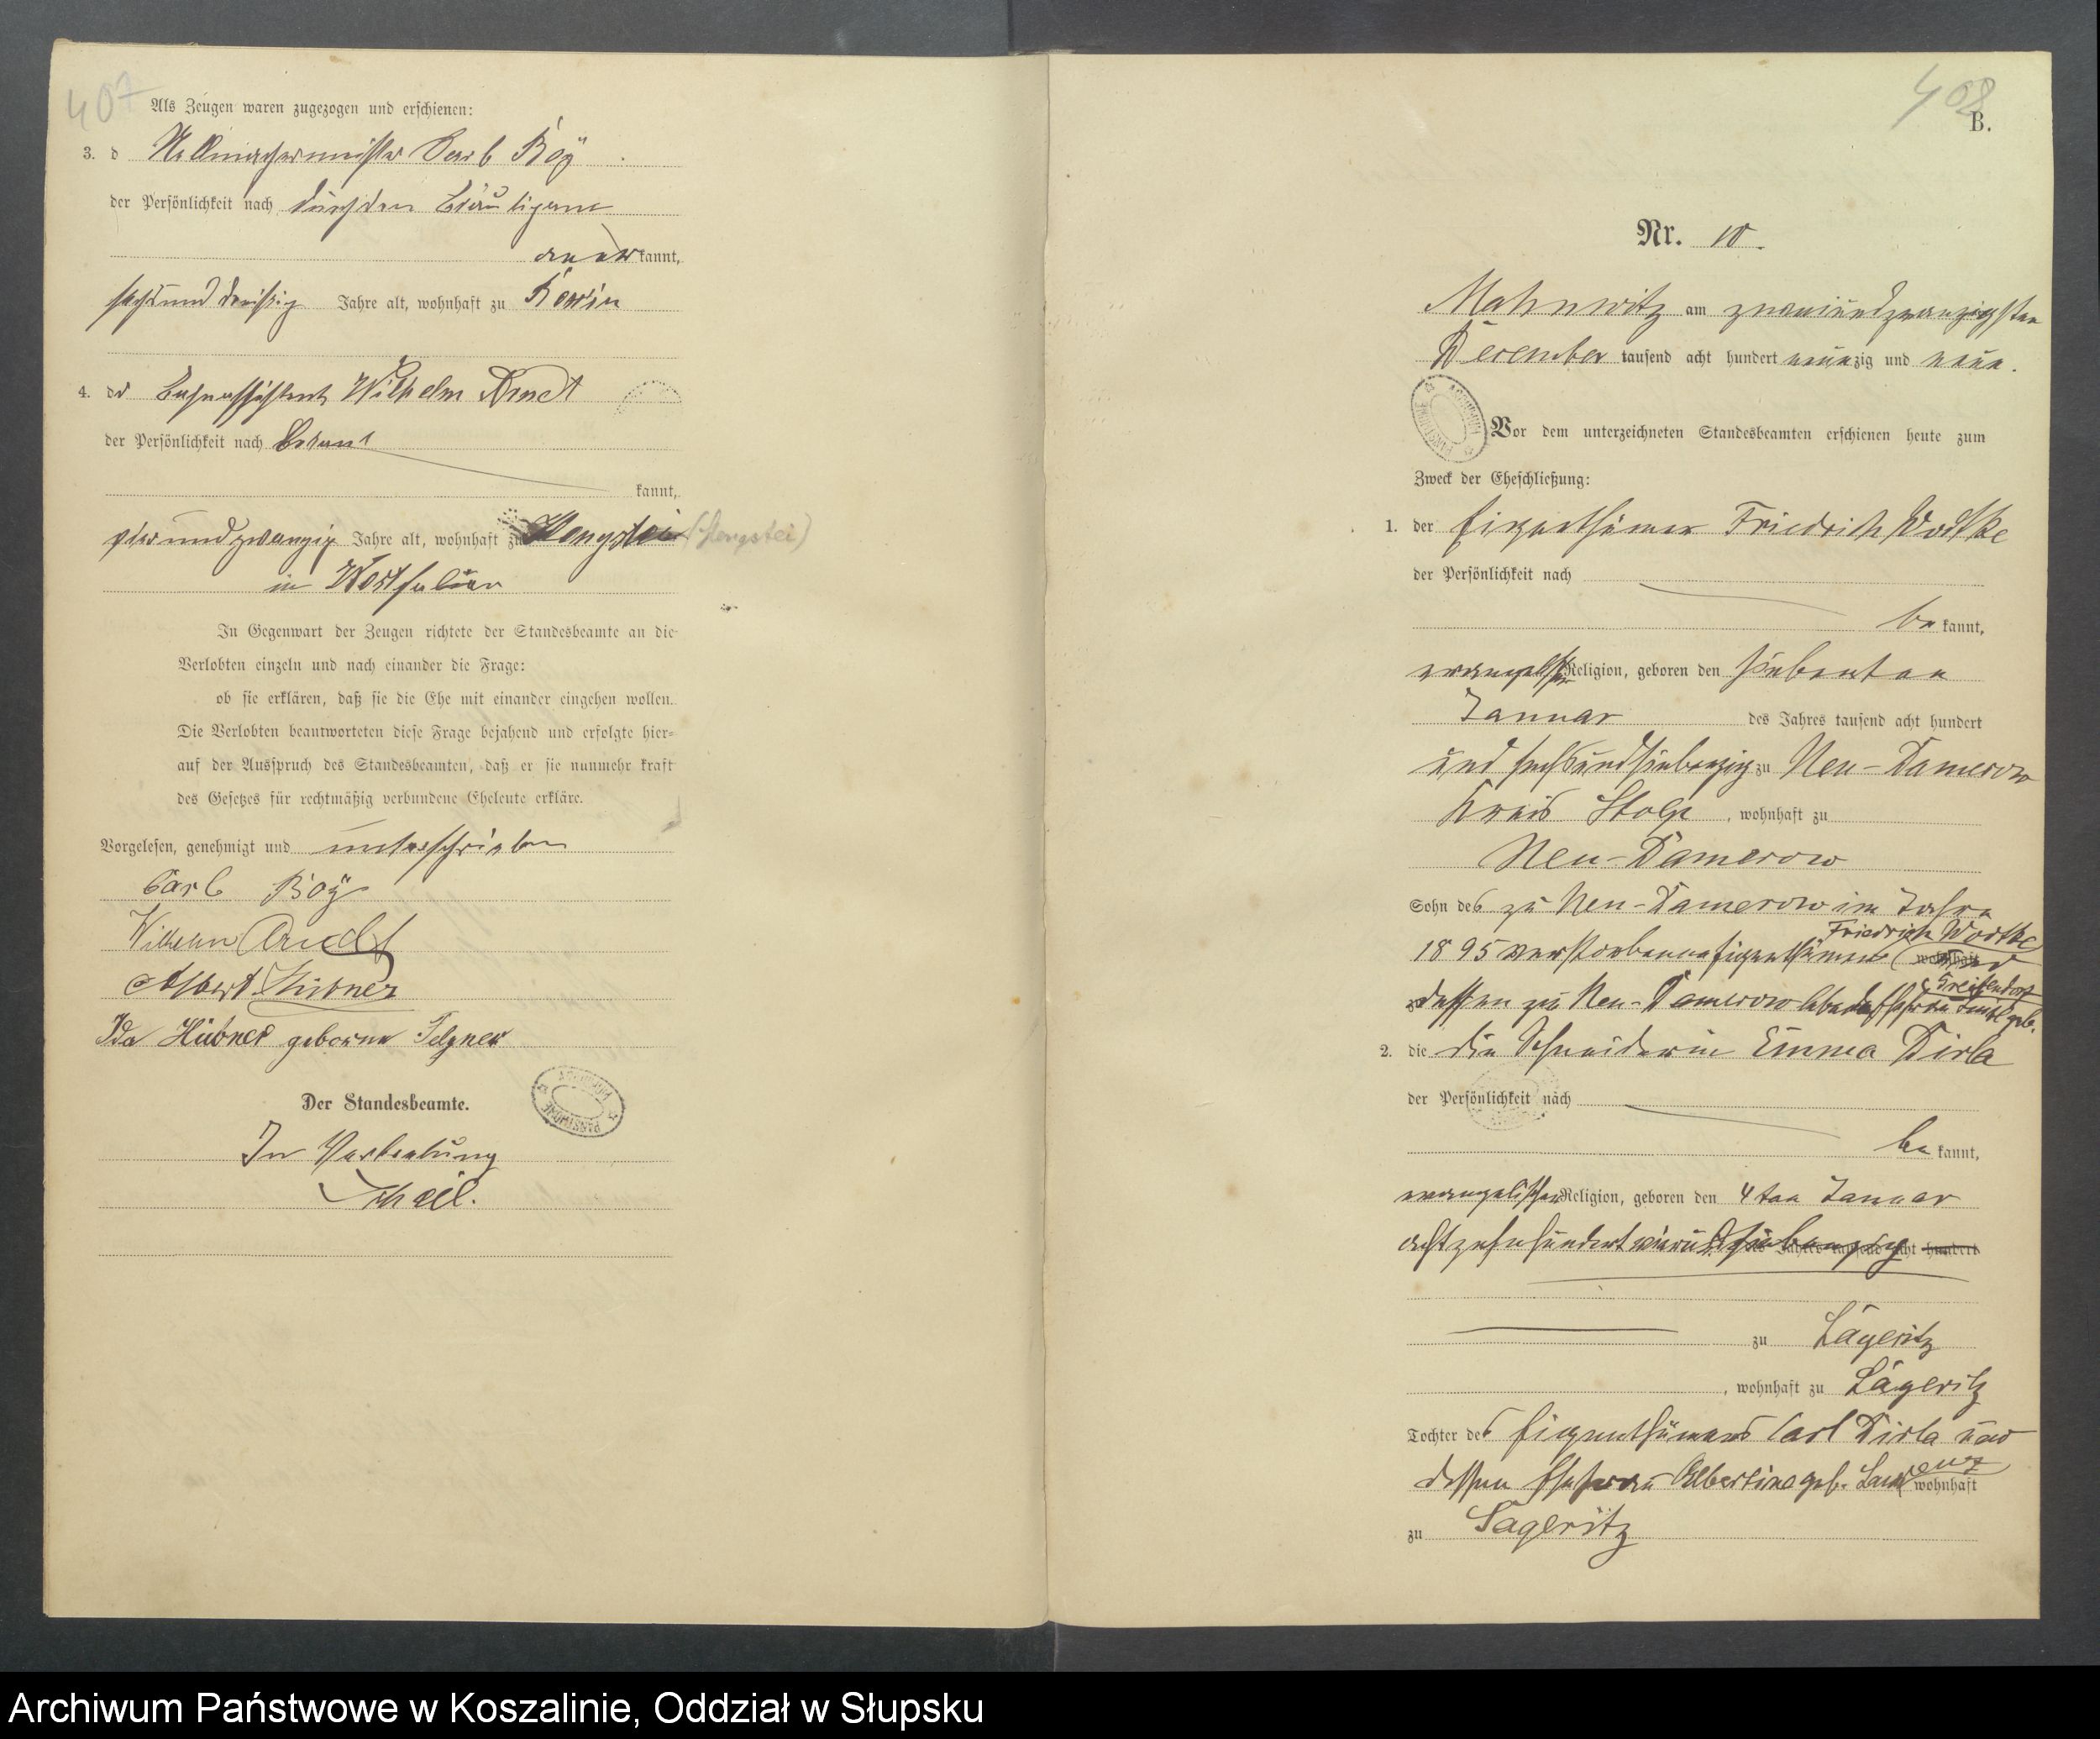 407
Als Zeugen waren zugezogen und erschienen:
3. d Carl Boÿ
der Persönlichkeit nach durch den Bräutigam
anerkannt,
sechsunddreißig Jahre alt, wohnhaft zu
4. der Wilhelm Arndt
der Persönlichkeit nach bekannt
kannt,
vierundzwanzig Jahre alt, wohnhaft zu Hengstei (Hengstei)
in Westfalen
In Gegenwart der Zeugen richtete der Standesbeamte an die
Verlobten einzeln und nach einander die Frage:
ob sie erklären, daß sie die Ehe mit einander eingehen wollen.
Die Verlobten beantworteten diese Frage bejahend und erfolgte hier=
auf der Ausspruch des Standesbeamten, daß er sie nunmehr kraft
des Gesetzes für rechtmäßig verbundene Eheleute erkläre.
Vorgelesen, genehmigt und unterschrieben
Carl Boÿ
Wilhelm Arndt
Albert Hübner
Ida Hübner geborne Felgner
Der Standesbeamte.
In Vertretung
408
B.
Nr. 10.
Mahnwitz am zweiundzwanzigsten
December tausend acht hundert neunzig und neun.
Vor dem unterzeichneten Standesbeamten erschienen heute zum
Zweck der Eheschließung:
1. der Eigenthümer Friedrich Wodtke
der Persönlichkeit nach
bekannt,
evangelischer Religion, geboren den siebenten
Januar des Jahres tausend acht hundert
und sechsundsiebenzig zu Neu-Damerow
Kreis Stolp, wohnhaft zu
Neu-Damerow
Sohn des zu Neu-Damerow im Jahre
1895 verstorbenen Eigenthümers Friedrich Wodtke wohnhaft und
zu dessen zu Neu-Damerow lebende Ehefrau geb. Greifendorf
2. die die Schneiderin Emma Dirla
der Persönlichkeit nach
bekannt,
evangelischer Religion, geboren den 4ten Januar
achtzehnhundert vierundsiebenzig des Jahres tausend acht hundert
zu Lägeritz
, wohnhaft zu Lägeritz
Tochter des Eigenthümers Carl Dirla und
dessen Ehefrau Albertine geb. Laurenz wohnhaft
zu Sageritz
Archiwum Państwowe w Koszalinie, Oddział w Słupsku